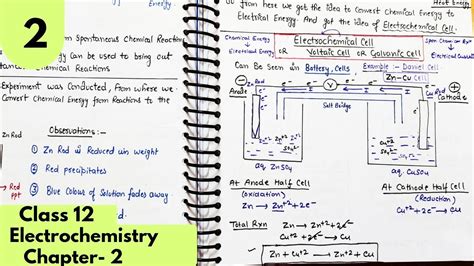 2
pontaneous Chemical Reaction
gy can be used to bring out
taneous Chemical Reactions
Experiment was Conducted, From where we
Convert Chemical Energy from Reactions to the
Zn Rod
Observations:-
① Zn Rod is Reduced in weight
② Red precipitates
③ Blue Colour of Solution fades away
Red
ppt
Class 12
Electrochemistry
Chapter- 2
So from here we got the idea to Convert Chemical Energy to
Electrical Energy. And got the idea of Electrochemical Cell.
Heat Energy
Chemical Energy
Electrical Energy
Electrochemical Cell
OR Voltaic Cell OR Galvanic Cell
Spon Chemical Rxn
Can Be Seen in Battery, Cells
Example :- Daniel Cell
Zn-Cu Cell
Zn Rod
Anode
V
I
e-
Salt Bridge
Cu Rod
Cathode
aq. ZnSO4
aq. CuSO4
At Anode Half Cell
(Oxidation)
Zn → Zn+2+2e-
At Cathode Half Cell
(Reduction)
Cu+2 + 2e- → Cu
Total Rxn
Zn → Zn+2+2e-
Cu+2 +2e- → Cu
Zn + Cu+2 → Zn+2 + Cu